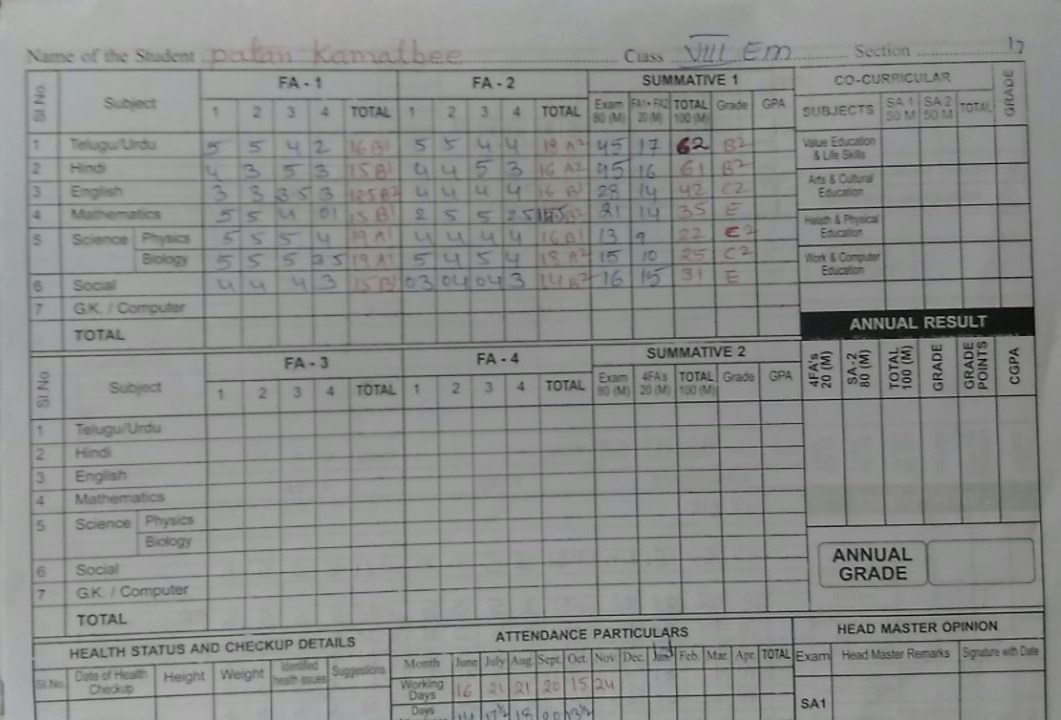 Name of the Student patan Kamalbee Class VIII Em Section 17
Sl.No Subject FA - 1 FA - 2 SUMMATIVE 1 CO-CURRICULAR GRADE
1 2 3 4 TOTAL 1 2 3 4 TOTAL Exam 80 (M) FA1+ FA2 20 (M) TOTAL 100 (M) Grade GPA SUBJECTS SA 1 50 M SA 2 50 M TOTAL
1 Telugu/Urdu 5 5 4 2 16 B1 5 5 4 4 18 A2 45 17 62 B2 Value Education & Life Skills
2 Hindi 4 3 5 3 15 B1 4 4 5 3 16 A2 45 16 61 B2
3 English 3 3 3 3.5 3 12.5 B2 4 4 4 4 16 B1 28 14 42 C2 Arts & Cultural Education
4 Mathematics 5 5 4 01 15 B1 2 5 5 2.5 21 14 35 E
5 Science Physics 5 5 5 4 19 A1 4 4 4 4 16 B1 13 9 22 C2 Health & Physical Education
Biology 5 5 5 3.5 19 A1 5 4 5 4 18 A2 15 10 25 C2 Work & Computer Education
6 Social 4 4 4 3 15 B1 03 04 04 3 14 B2 16 15 31 E
7 G.K. / Computer
TOTAL ANNUAL RESULT
Sl.No Subject FA - 3 FA - 4 SUMMATIVE 2 4FA's 20 (M) SA-2 80 (M) TOTAL 100 (M) GRADE GRADE POINTS CGPA
1 2 3 4 TOTAL 1 2 3 4 TOTAL Exam 80 (M) 4FA's 20 (M) TOTAL 100 (M) Grade GPA
1 Telugu/Urdu
2 Hindi
3 English
4 Mathematics
5 Science Physics
Biology
6 Social
7 G.K. / Computer
TOTAL
ANNUAL GRADE
HEALTH STATUS AND CHECKUP DETAILS ATTENDANCE PARTICULARS HEAD MASTER OPINION
Sl.No. Date of Health Checkup Height Weight Identified health issues Suggestions Month June July Aug. Sept. Oct. Nov. Dec. Jan. Feb. Mar. Apr. TOTAL Exam Head Master Remarks Signature with Date
Working Days 16 21 21 20 15 24
Days SA1